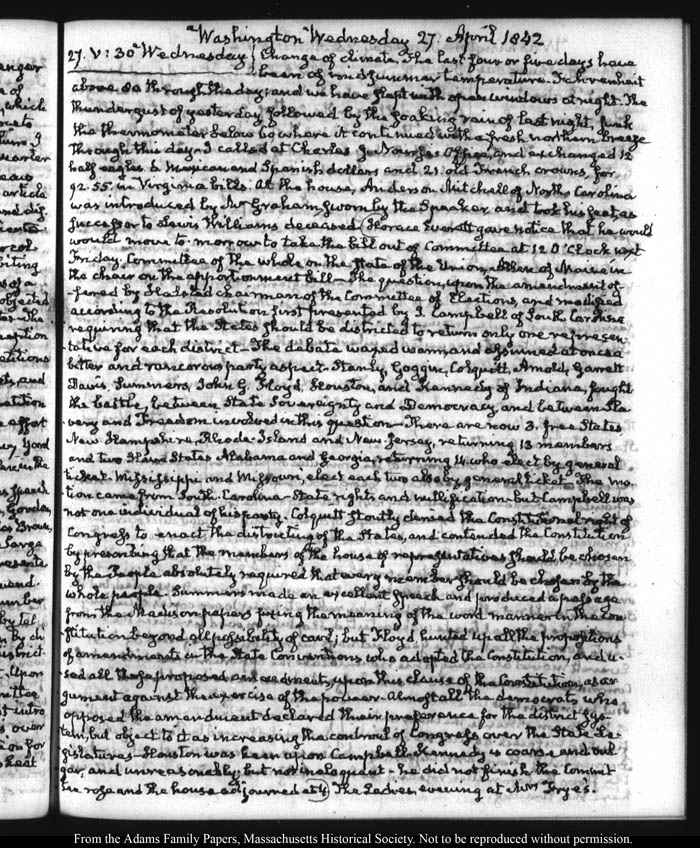 Washington Wednesday 27. April 1842
27. V: 30. Wednesday. Change of climate. The last four or five days have
been of midsummer temperature. Fahrenheit
above 80 through the day; and we have slept with open windows at night. The
thundergust of yesterday followed by the soaking rain of last night, sunk
the thermometer below 60 where it continued with a fresh northern breeze
through this day. I called at Charles J. Nourse's Office, and exchanged 12
half eagles 6 Mexican and Spanish dollars and 21. old French crowns, for
92.55. in Virginia bills. At the house, Anderson Mitchell of North Carolina
was introduced by Mr Graham, sworn by the Speaker, and took his seat as
successor to Lewis Williams deceased. Horace Everett gave notice that he would
would move to-morrow to take the bill out of Committee at 12 O'Clock next
Friday. Committee of the whole on the State of the Union, Allen of Maine in
the chair on the apportionment bill—The question, upon the amendment of-
fered by Halsted chairman of the Committee of Elections, and modified
according to the Resolution first presented by J. Campbell of South Carolina
requiring that the States should be districted to return only one represen-
tative for each district—The debate waxed warm and assumed at once a
bitter and rancorous party aspect. Stanly, Goggin, Colquitt, Arnold, Garrett
Davis, Summers, John G. Floyd, Houston, and Kennedy of Indiana, fought
the battle, between State Sovereignty and Democracy, and between Sla-
very and Freedom involved in this question—There are now 3. free States
New Hampshire, Rhode Island and New Jersey, returning 13 members
and two Slave States Alabama and Georgia returning 14 who elect by general
ticket. Mississippi and Missouri, elect each two also by general ticket—The mo-
tion came from South Carolina—State rights and nullification—but Campbell was
not one individual of his party. Colquitt stoutly denied the Constitutional right of
Congress to enact the districting of the States, and contended the Constitution
by prescribing that the members of the house of representatives should be chosen
by the People absolutely required that every member should be chosen by the
whole people. Summers made an excellent speech and produced a passage
from the Madison papers fixing the meaning of the word manner in the Con-
stitution beyond all possibility of cavil; but Floyd hunted up all the propositions
of amendments in the State Conventions who adopted the Constitution, and u-
sed all these proposed amendments, upon this clause of the Constitution, as ar-
gument against the exercise of the power. Almost all the democrats who
opposed the amendment declared their preference for the district sys-
tem, but object to it as increasing the controul of Congress over the State Le-
gislatures—Houston was keen upon Campbell. Kennedy is coarse and vul-
gar, and unreasonably but not ineloquent—he did not finish. The Commit-
tee rose and the house adjourned at 4. The Ladies, evening at Mrs Frye's.
From the Adams Family Papers, Massachusetts Historical Society. Not to be reproduced without permission.